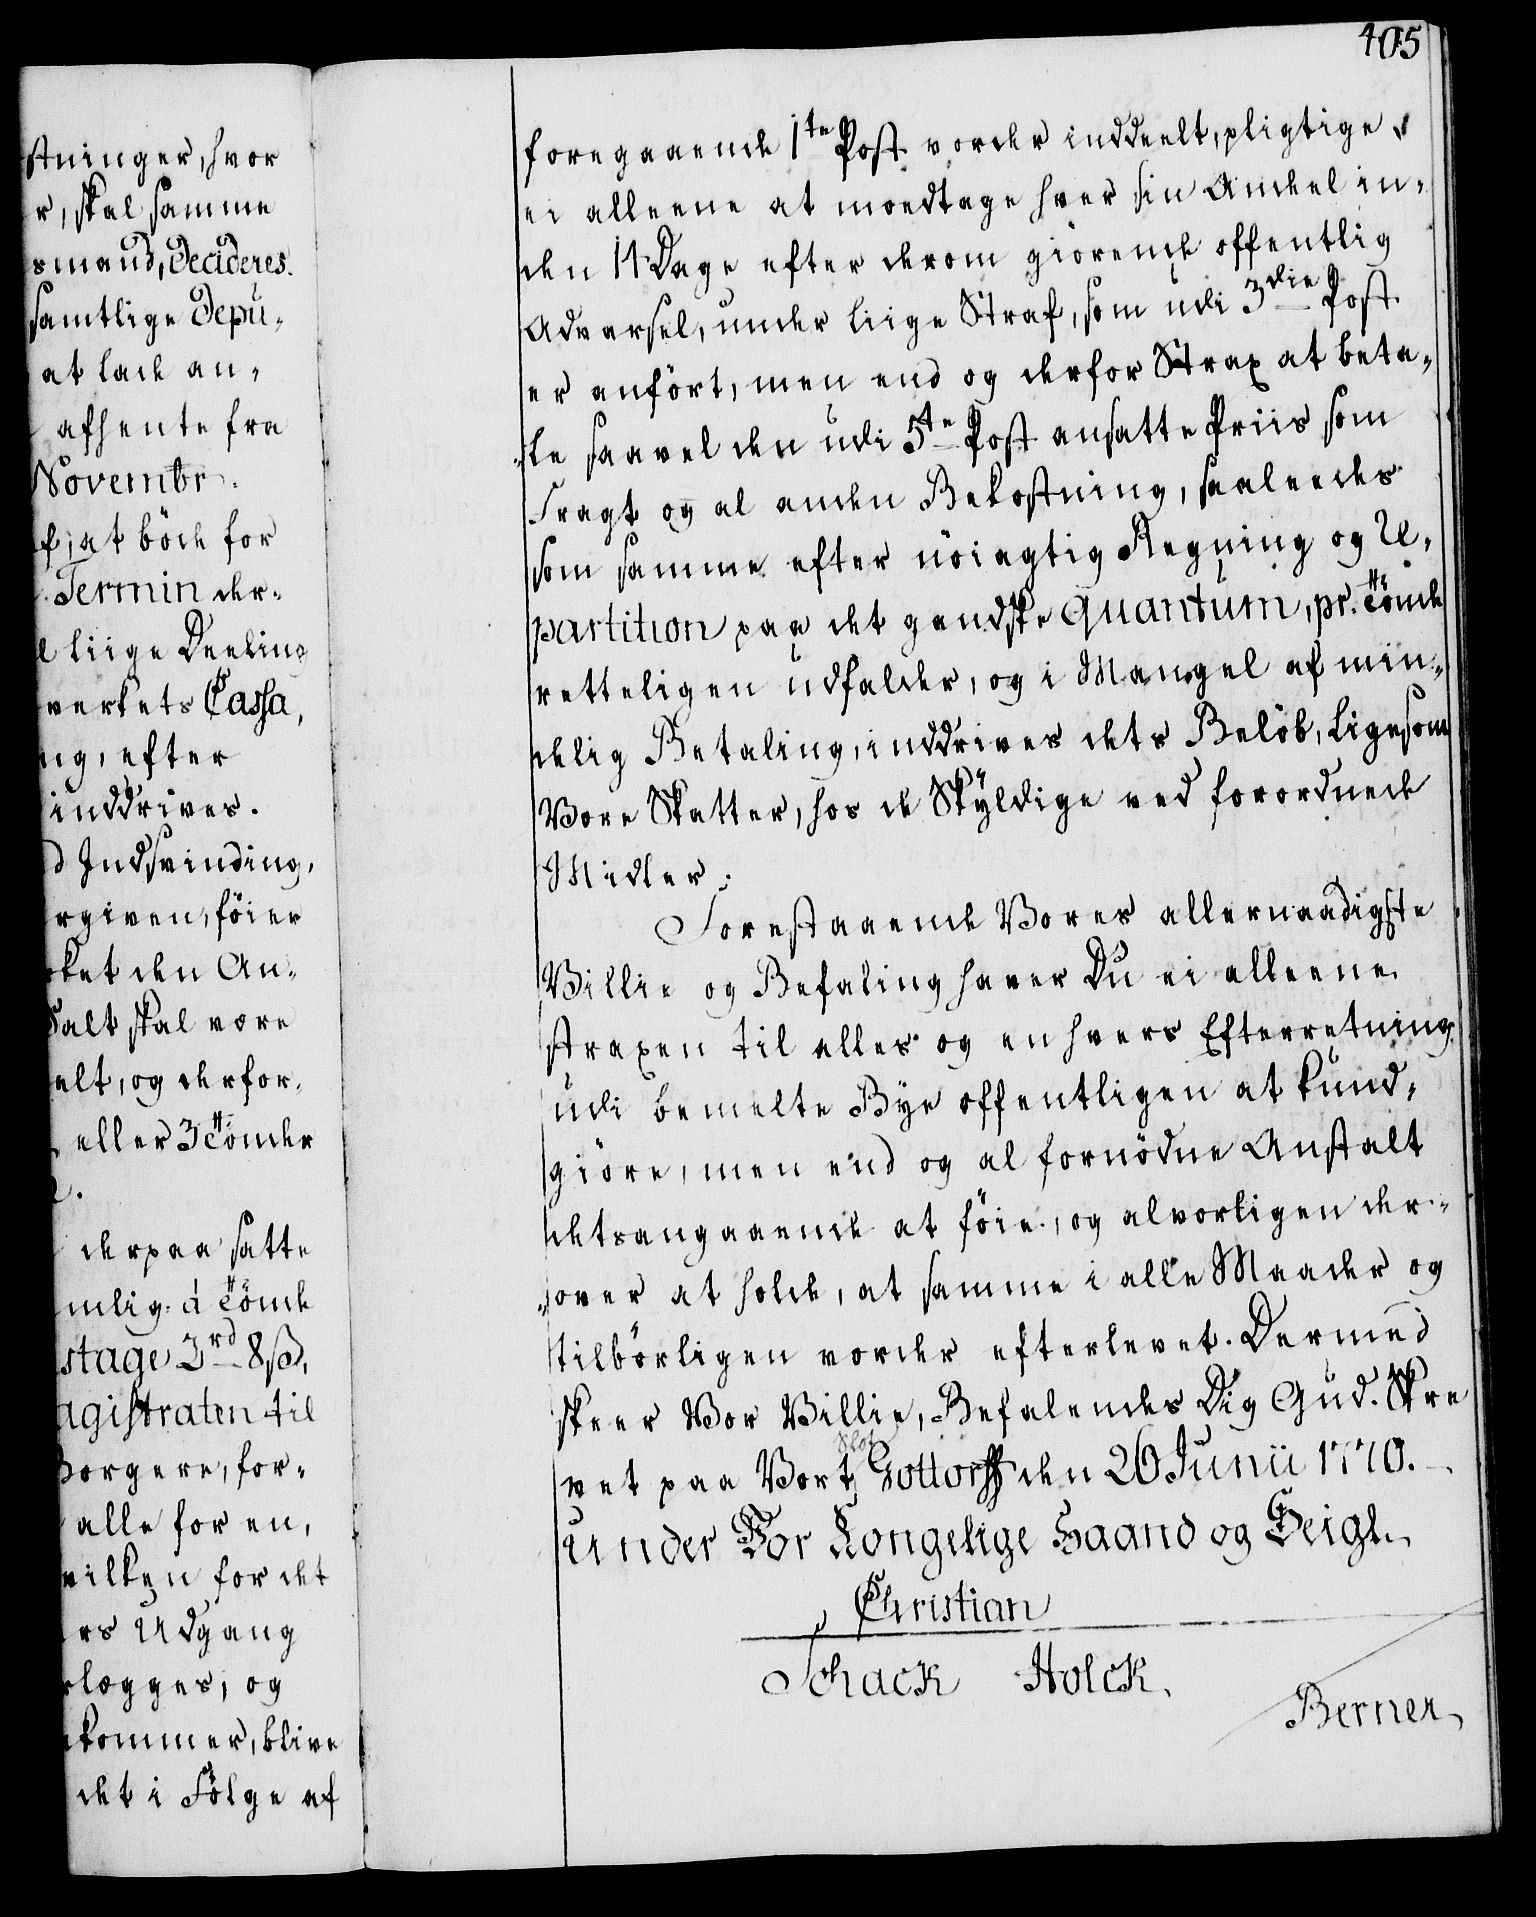 405
stninger, hvor
r, skal samme
smand, Decideres.
samtlige Depu-
at lade an-
afhente fra
Novembr.
f, at böde for
Termin der-
l liige Deeling
verkets Cassa,
ng, efter
inddrives.
d Indsvinding,
rgiven, föier
ket den An-
Salt skal være
elt, og derfor,
eller 3 Tönder
derpaa satte
mlig: á Tönde
stage 3 rd 8 ß,
agistraten til
Borgere, for-
alle for en,
vilken for det
rs Udgang
rlægges, og
kommer, blive
det i Fölge af
foregaaende 1te Post vorder inddeelt, pligtige
ei alleene at modtage hver sin Andeel in-
den 14 Dage efter derom giörende offentlig
Advarsel, under liige Straf, som udi 3die Post
er anfört, men end og derfor Strax at beta-
le saavel den udi 5te Post ansatte Priis som
Fragt og al anden Bekostning, saaleedes
som samme efter nöiagtig Regning og Re-
partition paa det gandske Quantum, pr. Tönde
retteligen udfalder, og i Mangel af min-
delig Betaling, inddrives dets Belöb, ligesom
Vore Skatter, hos de Skyldige ved forordnede
Midler.
Forestaaende Vores allernaadigste
Villie og Befaling haver Du ei alleene
straxen til alles og en hvers Efterretning
udi bemelte Bye offentligen at kund-
giöre, men end og al fornödne Anstalt
detsangaaende at föie, og alvorligen der-
over at holde, at samme i alle Maader og
tilbörligen vorder efterlevet. Dermed
skeer Vor Villie, Befalendes Dig Gud. Skre
vet paa Vort Slot Gottorff den 26 Junii 1770.
Under Vor Kongelige Haand og Seigl.
Christian
Schack Holck.
Berner